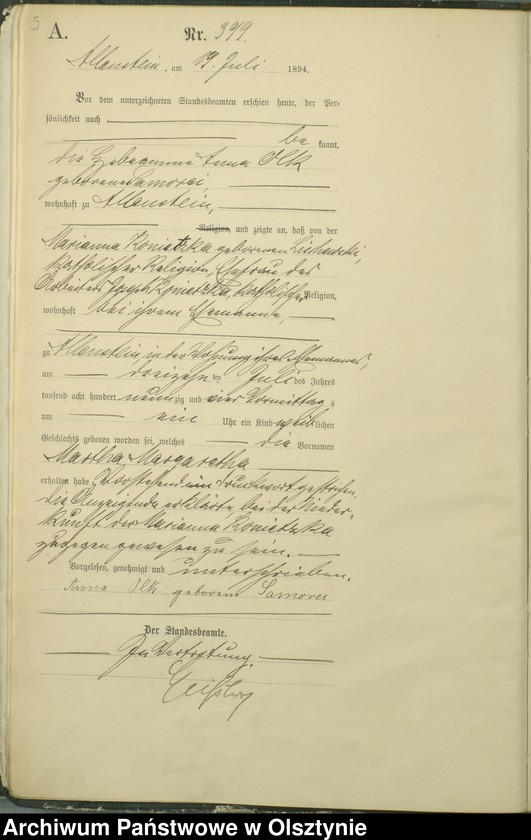 5
A.
Nr. 399.
Allenstein, am 19. Juli 1894.
Vor dem unterzeichneten Standesbeamten erschien heute, der Per-
sönlichkeit nach
be kannt,
die Hebamme Anna Olk
geborene Samorei,
wohnhaft zu Allenstein,
Religion, und zeigte an, daß von der
Marianna Konietzka geborenen
katholischer Religion, Ehefrau des
Arbeiters Joseph Konietzka, katholischer Religion,
wohnhaft bei ihrem Ehemanne,
zu Allenstein in der Wohnung ihres Ehemannes,
am dreizehn ten Juli des Jahres
tausend acht hundert neun zig und vier Vormittag s
um ein Uhr ein Kind weib lichen
Geschlechts geboren worden sei, welches die Vornamen
Martha Margaretha
erhalten habe. Vorstehend ein Druckwort gestrichen.
Die Anzeigende erklärte bei der Nieder-
kunft der Marianna Konietzka
zugegen gewesen zu sein.
Vorgelesen, genehmigt und unterschrieben.
Anna Olk geborene Samorei
Der Standesbeamte.
In Vertretung.
Archiwum Państwowe w Olsztynie